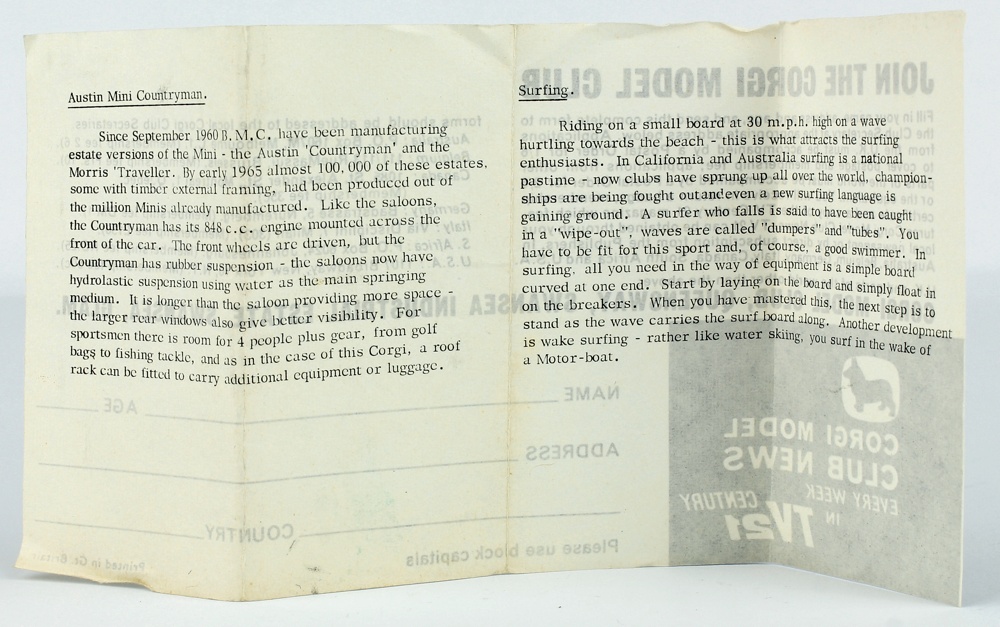 Austin Mini Countryman.
Since September 1960 B.M.C. have been manufacturing
estate versions of the Mini - the Austin 'Countryman' and the
Morris 'Traveller. By early 1965 almost 100,000 of these estates,
some with timber external framing, had been produced out of
the million Minis already manufactured. Like the saloons,
the Countryman has its 848 c.c. engine mounted across the
front of the car. The front wheels are driven, but the
Countryman has rubber suspension - the saloons now have
hydrolastic suspension using water as the main springing
medium. It is longer than the saloon providing more space -
the larger rear windows also give better visibility. For
sportsmen there is room for 4 people plus gear, from golf
bags to fishing tackle, and as in the case of this Corgi, a roof
rack can be fitted to carry additional equipment or luggage.
Surfing.
Riding on a small board at 30 m.p.h. high on a wave
hurtling towards the beach - this is what attracts the surfing
enthusiasts. In California and Australia surfing is a national
pastime - now clubs have sprung up all over the world, champion-
ships are being fought outandeven a new surfing language is
gaining ground. A surfer who falls is said to have been caught
in a "wipe-out", waves are called "dumpers" and "tubes". You
have to be fit for this sport and, of course, a good swimmer. In
surfing, all you need in the way of equipment is a simple board
curved at one end. Start by laying on the board and simply float in
on the breakers. When you have mastered this, the next step is to
stand as the wave carries the surf board along. Another development
is wake surfing - rather like water skiing, you surf in the wake of
a Motor-boat.
JOIN THE CORGI MODEL CLUB
NAME
AGE
ADDRESS
COUNTRY
Please use block capitals
Printed in Gt. Britain
CORGI MODEL
CLUB NEWS
EVERY WEEK
IN
TV CENTURY
21